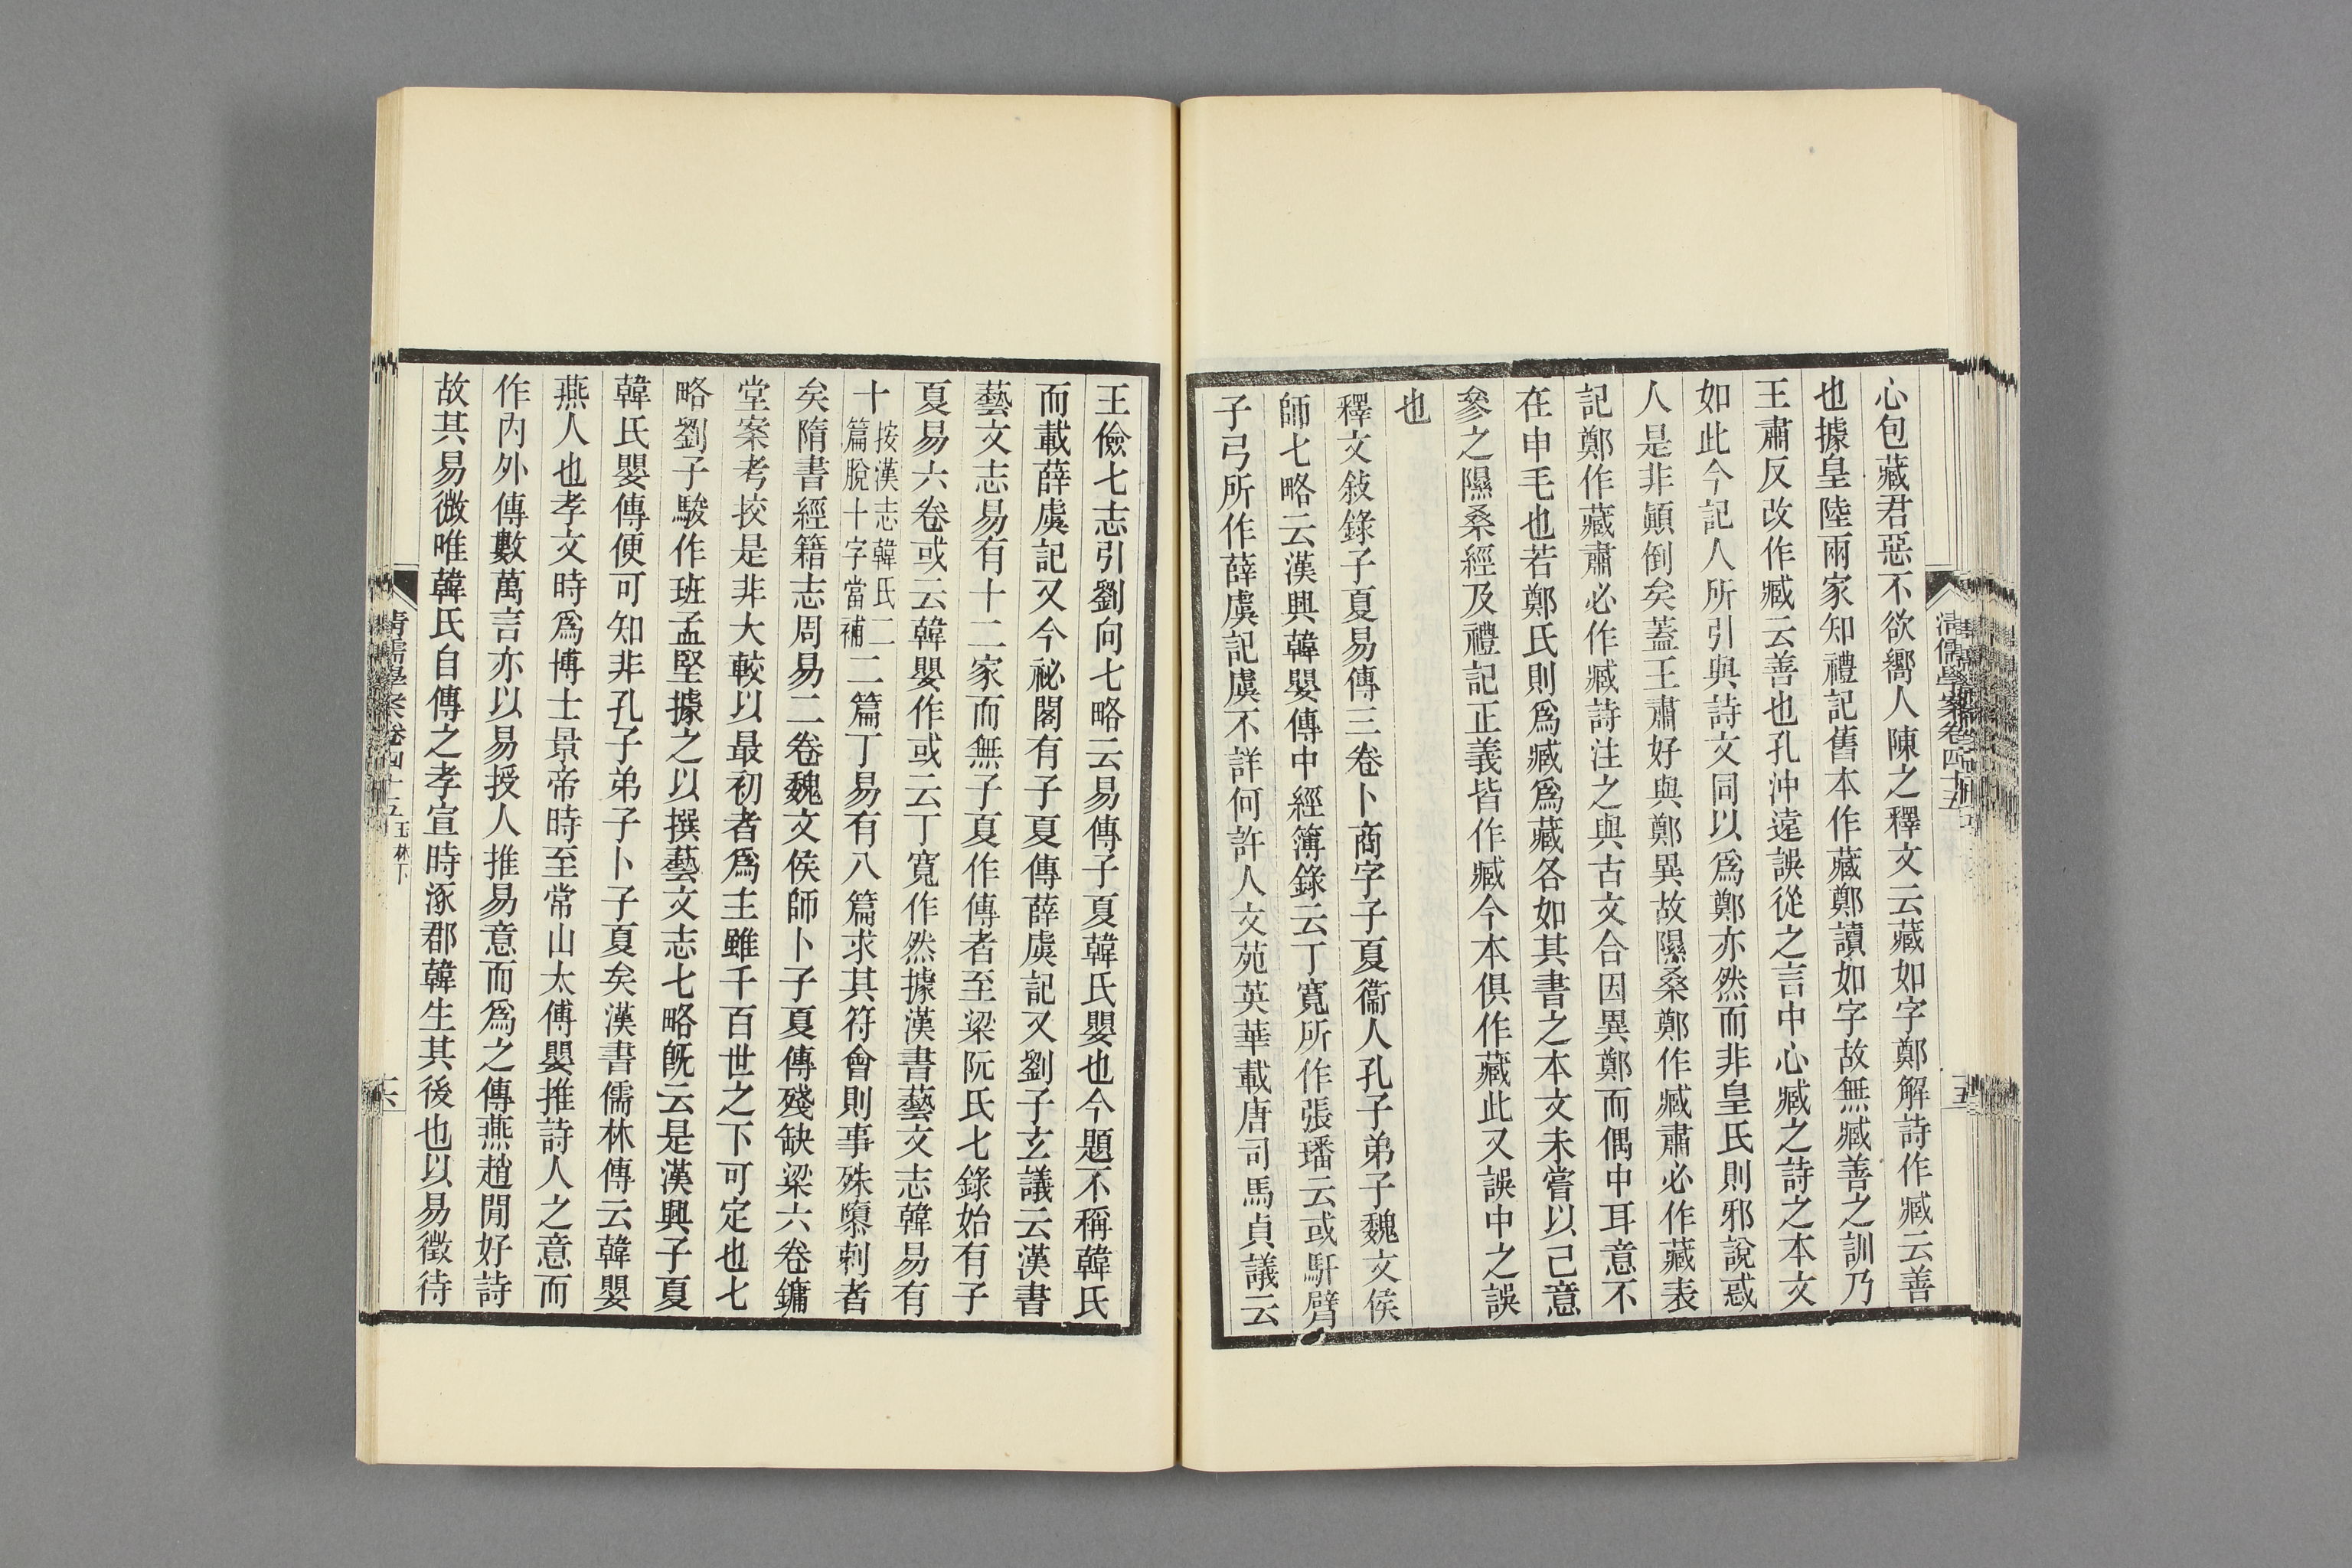 心包藏君惡不欲嚮人陳之釋文云藏如字鄭解詩作臧云善
也據皇陸兩家知禮記舊本作藏鄭讀如字故無臧善之訓乃
王肅反改作臧云善也孔沖遠誤從之言中心臧之詩之本文
如此今記人所引與詩文同以爲鄭亦然而非皇氏則邪說惑
人是非顚倒矣蓋王肅好與鄭異故隰桑鄭作臧肅必作藏表
記鄭作藏肅必作臧詩注之與古文合因異鄭而偶中耳意不
在申毛也若鄭氏則爲臧爲藏各如其書之本文未嘗以己意
參之隰桑經及禮記正義皆作臧今本俱作藏此又誤中之誤
也
釋文敍錄子夏易傳三卷卜商字子夏衞人孔子弟子魏文侯
師七略云漢興韓嬰傳中經簿錄云丁寬所作張璠云或馯臂
子弓所作薛虞記虞不詳何許人文苑英華載唐司馬貞議云
清儒學案卷四十五
五
王儉七志引劉向七略云易傳子夏韓氏嬰也今題不稱韓氏
而載薛虞記又今祕閣有子夏傳薛虞記又劉子玄議云漢書
藝文志易有十二家而無子夏作傳者至梁阮氏七錄始有子
夏易六卷或云韓嬰作或云丁寬作然據漢書藝文志韓易有
十按漢志韓氏二篇脫十字當補二篇丁易有八篇求其符會則事殊隳剌者
矣隋書經籍志周易二卷魏文侯師卜子夏傳殘缺梁六卷鏞
堂案考挍是非大較以最初者爲主雖千百世之下可定也七
略劉子駿作班孟堅據之以撰藝文志七略旣云是漢興子夏
韓氏嬰傳便可知非孔子弟子卜子夏矣漢書儒林傳云韓嬰
燕人也孝文時爲博士景帝時至常山太傅嬰推詩人之意而
作內外傳數萬言亦以易授人推易意而爲之傳燕趙閒好詩
故其易微唯韓氏自傳之孝宣時涿郡韓生其後也以易徵待
清儒學案卷四十五 玉林下
六